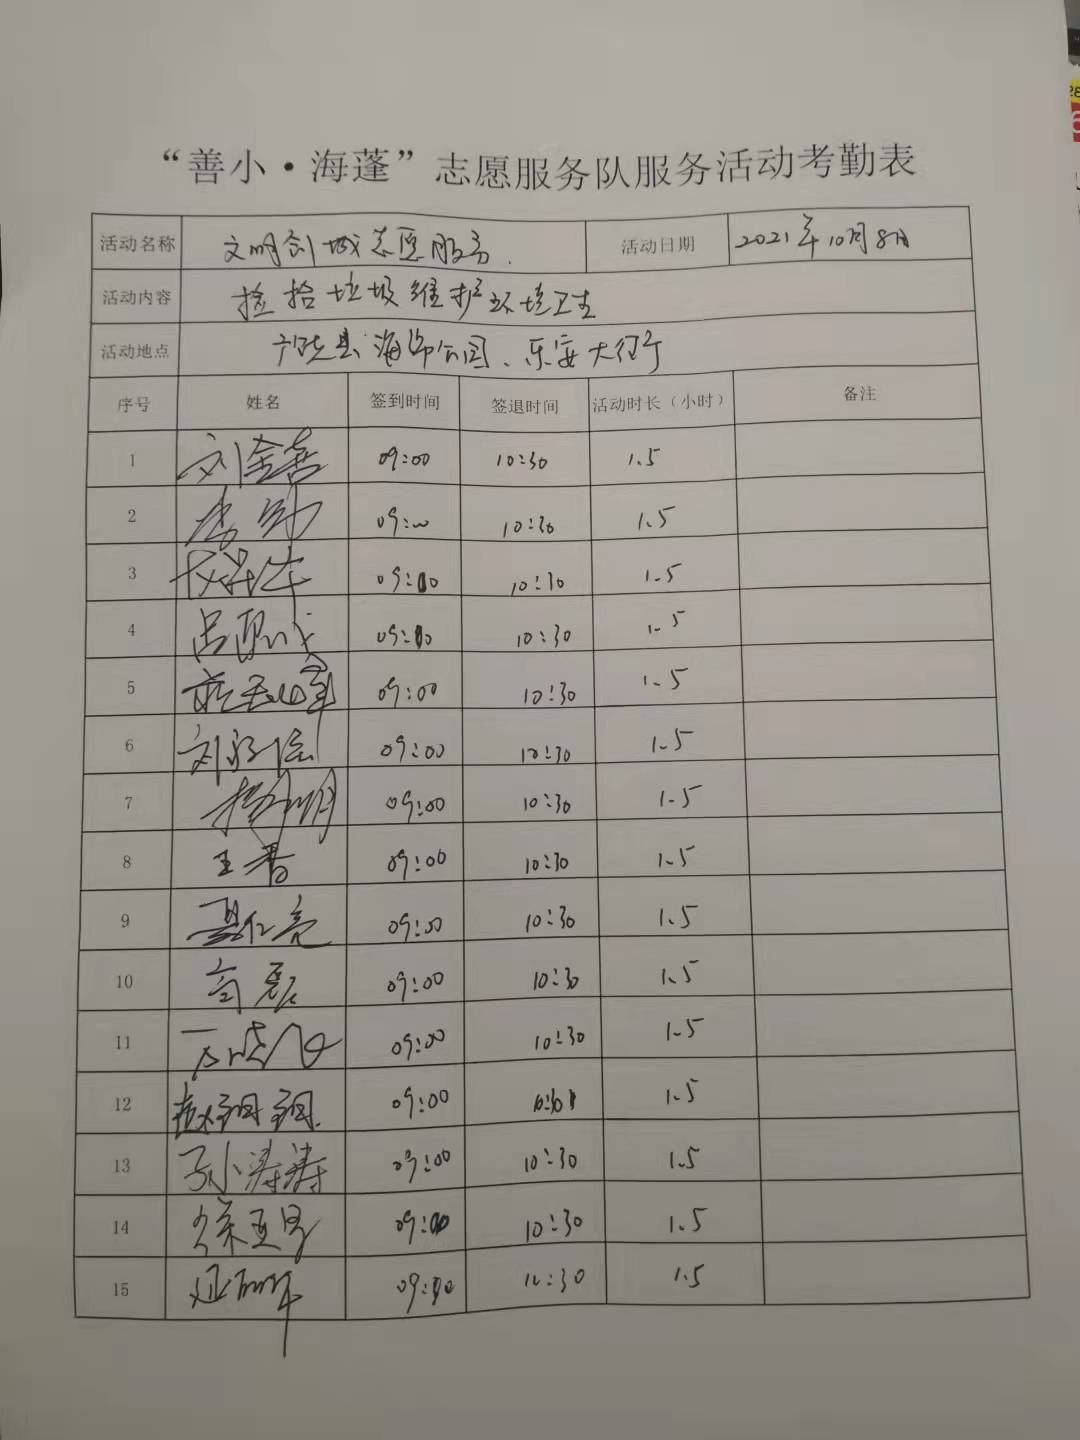 “善小·海蓬”志愿服务队服务活动考勤表
活动名称 文明创城志愿服务. 活动日期 2021年10月8日
活动内容 捡拾垃圾维护环境卫生
活动地点 海饰公园、乐安大街
序号 姓名 签到时间 签退时间 活动时长（小时） 备注
1 刘金喜 09:00 10:30 1.5
2 李 09:00 10:30 1.5
3 09:00 10:30 1.5
4 吕 09:00 10:30 1.5
5 09:00 10:30 1.5
6 刘 09:00 10:30 1.5
7 09:00 10:30 1.5
8 王晋 09:00 10:30 1.5
9 聂仁亮 09:00 10:30 1.5
10 高磊 09:00 10:30 1.5
11 09:00 10:30 1.5
12 赵钿钿 09:00 1.5
13 孙涛涛 09:00 10:30 1.5
14 徐亚男 09:00 10:30 1.5
15 09:00 10:30 1.5